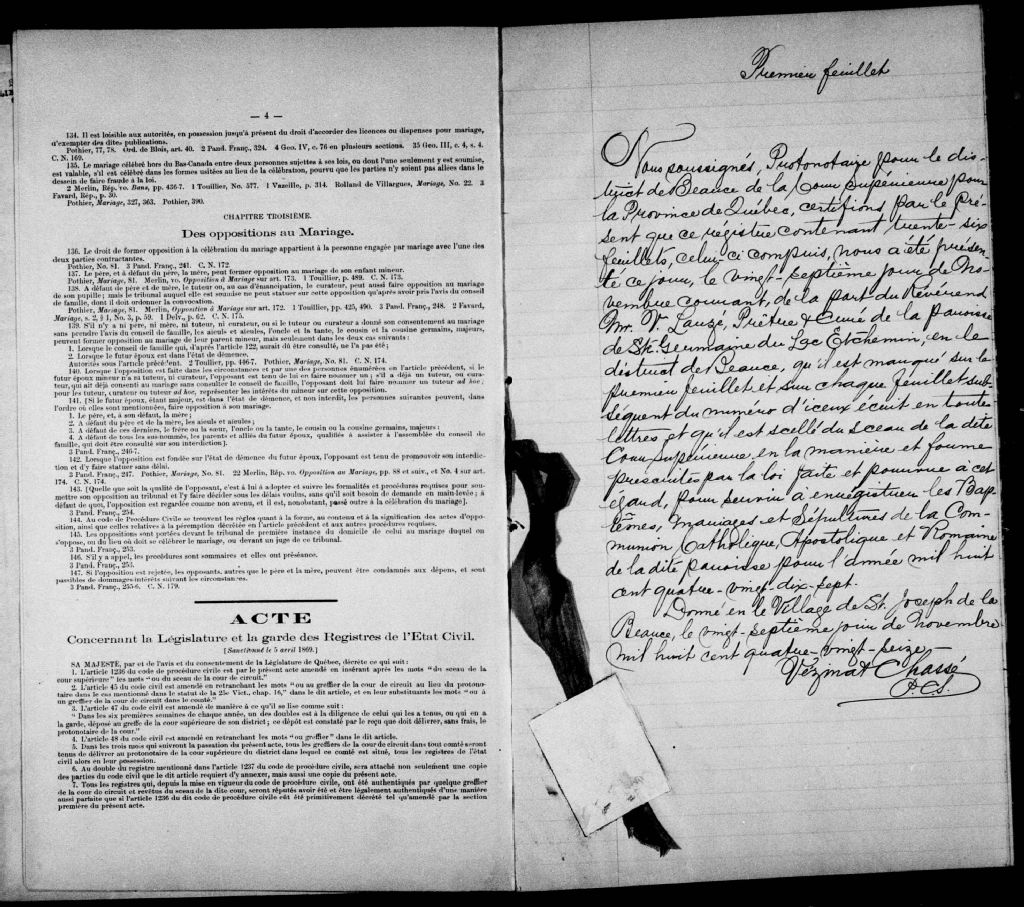 — 4 —
134. Il est loisible aux autorités, en possession jusqu'à présent du droit d'accorder des licences ou dispenses pour mariage,
d'exempter des dites publications.
Pothier, 77, 78. Ord. de Blois, art. 40. 2 Pand. Franç., 324. 4 Geo. IV, c. 76 en plusieurs sections. 35 Geo. III, c. 4, s. 4.
C. N. 169.
135. Le mariage célébré hors du Bas-Canada entre deux personnes sujettes à ses lois, ou dont l'une seulement y est soumise,
est valable, s'il est célébré dans les formes usitées au lieu de la célébration, pourvu que les parties n'y soient pas allées dans le
dessein de faire fraude à la loi.
2 Merlin, Rép. vo. Bans, pp. 436-7. 1 Touillier, No. 577. 1 Vazeille, p. 314. Rolland de Villargues, Mariage, No. 22. 3
Favard, Rép., p. 30.
Pothier, Mariage, 327, 363. Pothier, 390.
CHAPITRE TROISIÈME.
Des oppositions au Mariage.
136. Le droit de former opposition à la célébration du mariage appartient à la personne engagée par mariage avec l'une des
deux parties contractantes.
Pothier, No. 81. 3 Pand. Franç., 241. C. N. 172.
137. Le père, et à défaut du père, la mère, peut former opposition au mariage de son enfant mineur.
Pothier, Mariage, 81. Merlin, vo. Opposition à Mariage sur art. 173. 1 Touillier, p. 489. C. N. 173.
138. A défaut de père et de mère, le tuteur ou, au cas d'émancipation, le curateur, peut aussi faire opposition au mariage
de son pupille; mais le tribunal auquel elle est soumise ne peut statuer sur cette opposition qu'après avoir pris l'avis du conseil
de famille, dont il doit ordonner la convocation.
Pothier, Mariage, 81. Merlin, Opposition à Mariage sur art. 172. 1 Touillier, pp. 425, 490. 3 Pand. Franç., 248. 2 Favard,
Mariage, s. 2, § 1, No. 3, p. 59. 1 Delv., p. 62. C. N. 175.
139. S'il n'y a ni père, ni mère, ni tuteur, ni curateur, ou si le tuteur ou curateur a donné son consentement au mariage
sans prendre l'avis du conseil de famille, les aïeuls et aïeules, l'oncle et la tante, le cousin et la cousine germains, majeurs,
peuvent former opposition au mariage de leur parent mineur, mais seulement dans les deux cas suivants:
1. Lorsque le conseil de famille qui, d'après l'article 122, aurait dû être consulté, ne l'a pas été;
2. Lorsque le futur époux est dans l'état de démence.
Autorités sous l'article précédent. 2 Touiller, pp. 446-7. Pothier, Mariage, No. 81. C. N. 174.
140. Lorsque l'opposition est faite dans les circonstances et par une des personnes énumérées en l'article précédent, si le
futur époux mineur n'a ni tuteur, ni curateur, l'opposant est tenu de lui en faire nommer un; s'il a déjà un tuteur, ou cura-
teur, qui ait déjà consenti au mariage sans consulter le conseil de famille, l'opposant doit lui faire nommer un tuteur ad hoc;
pour les tuteur, curateur ou tuteur ad hoc, représenter les intérêts du mineur sur cette opposition.
141. [Si le futur époux, étant majeur, est dans l'état de démence, et non interdit, les personnes suivantes peuvent, dans
l'ordre où elles sont mentionnées, faire opposition à son mariage.
1. Le père, et, à son défaut, la mère;
2. A défaut du père et de la mère, les aïeuls et aïeules;
3. A défaut de ces derniers, le frère ou la sœur, l'oncle ou la tante, le cousin ou la cousine germains, majeurs:
4. A défaut de tous les sus-nommés, les parents et alliés du futur époux, qualifiés à assister à l'assemblée du conseil de
famille, qui doit être consulté sur son interdiction].
3 Pand. Franç., 246-7.
142. Lorsque l'opposition est fondée sur l'état de démence du futur époux, l'opposant est tenu de promouvoir son interdic-
tion et d'y faire statuer sans délai.
3 Pand. Franç., 247. Pothier, Mariage, No. 81. 22 Merlin, Rép. vo. Opposition au Mariage, pp. 88 et suiv., et No. 4 sur art.
174. C. N. 174.
143. [Quelle que soit la qualité de l'opposant, c'est à lui à adopter et suivre les formalités et procédures requises pour sou-
mettre son opposition au tribunal et l'y faire décider sous les délais voulus, sans qu'il soit besoin de demande en main-levée; à
défaut de quoi, l'opposition est regardée comme non avenu, et il est, nonobstant, passé outre à la célébration du mariage].
3 Pand. Franç., 254.
144. Au code de Procédure Civile se trouvent les règles quant à la forme, au contenu et à la signification des actes d'oppo-
sition, ainsi que celles relatives à la péremption décrétée en l'article précédent et aux autres procédures requises.
145. Les oppositions sont portées devant le tribunal de première instance du domicile de celui au mariage duquel on
s'oppose, ou du lieu où doit se célébrer le mariage, ou devant un juge de ce tribunal.
3 Pand. Franç., 253.
146. S'il y a appel, les procédures sont sommaires et elles ont préséance.
3 Pand. Franç., 253.
147. Si l'opposition est rejetée, les opposants, autres que le père et la mère, peuvent être condamnés aux dépens, et sont
passibles de dommages-intérêts suivant les circonstances.
3 Pand. Franç., 255-6. C. N. 179.
ACTE
Concernant la Législature et la garde des Registres de l'Etat Civil.
[Sanctionné le 5 avril 1869.]
SA MAJESTÉ, par et de l'avis et du consentement de la Législature de Québec, décrète ce qui suit:
1. L'article 1236 du code de procédure civile est par le présent acte amendé en insérant après les mots "du sceau de la
cour supérieure" les mots "ou du sceau de la cour de circuit."
2. L'article 45 du code civil est amendé en retranchant les mots "ou au greffier de la cour de circuit au lieu du protono-
taire dans le cas mentionné dans le statut de la 25e Vict., chap. 16," dans le dit article, et en leur substituant les mots "ou à
un greffier de la cour de circuit dans le comté."
3. L'article 47 du code civil est amendé de manière à ce qu'il se lise comme suit:
"Dans les six premières semaines de chaque année, un des doubles est à la diligence de celui qui les a tenus, ou qui en a
la garde, déposé au greffe de la cour supérieure de son district; ce dépôt est constaté par le reçu que doit délivrer, sans frais, le
protonotaire de la cour."
4. L'article 48 du code civil est amendé en retranchant les mots "ou greffier" dans le dit article.
5. Dans les trois mois qui suivront la passation du présent acte, tous les greffiers de la cour de circuit dans tout comté seront
tenus de délivrer au protonotaire de la cour supérieure du district dans lequel ce comté est situé, tous les registres de l'état
civil alors en leur possession.
6. Au double du registre mentionné dans l'article 1237 du code de procédure civile, sera attaché non seulement une copie
des parties du code civil que le dit article requiert d'y annexer, mais aussi une copie du présent acte.
7. Tous les registres qui, depuis la mise en vigueur du code de procédure civile, ont été authentiqués par quelque greffier
de la cour de circuit et revêtus du sceau de la dite cour, seront réputés avoir été et être légalement authentiqués d'une manière
aussi parfaite que si l'article 1236 du dit code de procédure civile eût été primitivement décrété tel qu'amendé par la section
première du présent acte.
Premier feuillet
Nous soussignés, Protonotaire pour le dis-
trict de Beauce de la Cour Supérieure pour
la Province de Québec, certifions par le pré-
sent que ce régistre contenant trente-six
feuillets, celui-ci compris, nous a été présen-
té ce jour, le vingt-septième jour de No-
vembre courant, de la part du Révérend
Mr. V. Lauzé, Prêtre & Curé de la paroisse
de St. Germaine du Lac Etchemin, en le
district de Beauce, qu'il est marqué sur le
premier feuillet et sur chaque feuillet sub-
séquent du numéro d'iceux écrit en toutes
lettres et qu'il est scellé du sceau de la dite
Cour Supérieure en la manière et forme
prescrites par la loi faite et pourvue à cet
égard, pour servir à enregistrer les Bap-
têmes, Mariages et Sépultures de la Com-
munion Catholique, Apostolique et Romaine
de la dite paroisse pour l'année mil huit
cent quatre-vingt-dix-sept.
Donné en le Village de St. Joseph de la
Beauce, le vingt-septième jour de Novembre
mil huit cent quatre-vingt-seize
Vézina & Chassé
P.C.S.